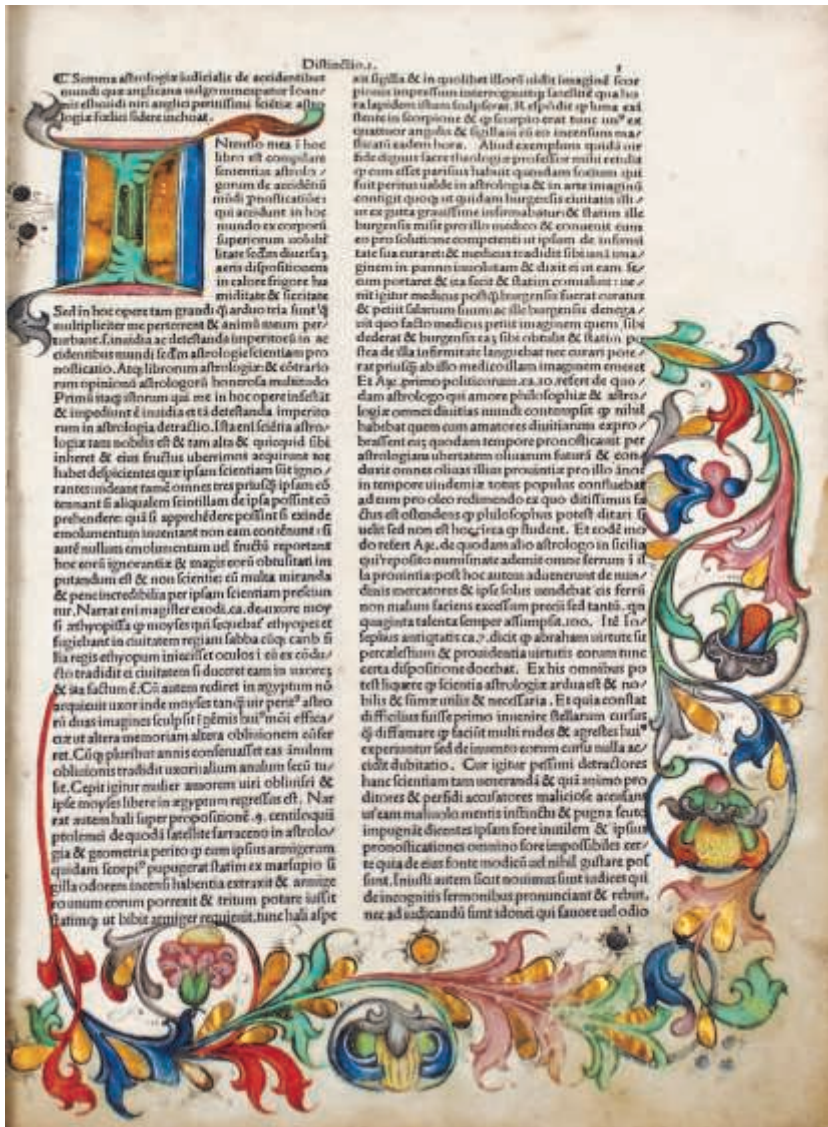 Distinctio.1.
¶ Summa astrologiæ iudicialis de accidentibus
mundi quæ anglicana uulgo nuncupatur Ioan/
nis eschuidi uiri anglici peritissimi sciētiæ astro
logiæ fœlici sidere inchoat.
INtentio mea ī hoc
libro est compilare
sententias astrolo/
gorum de accidētiū
mūdi pnosticatiōe:
qui accidunt in hoc
mundo ex corporū
superiorum uolubi
litate secūm diuersaꝫ
aeris dispositionem
in calore frigore hu
miditate & siccitate
Sed in hoc opere tam grandi q̄ arduo tria sunt q̄
multipliciter me perterrent & animū meum per/
turbant. s. inuidia ac detestanda imperitorū in ac
cidentibus mundi secūm astrologie scientiam pro
nosticatio. Atq̢ librorum astrologiæ & cōtrario
rum opinionū astrologorū honerosa multitudo
Primū itaq̢ istorum qui me in hoc opere infestāt
& impediunt ē inuidia et tā detestanda imperito
rum in astrologia detractio. Ista eni sciētia astro/
logiæ tam nobilis est & tam alta & quicquid sibi
inheret & eius fructus uberrimos acquirunt tot
habet despicientes quæ ipsam scientiam sūt igno/
rantes: uideant tamē omnes tres priusq̄ ipsam cō
temnant si aliqualem scintillam de ipsa possint cō
prehendere: quā si apprehēdere possint si exinde
emolumentum inueniant non eam contēnunt: si
autē nullum emolumentum uel fructū reportant
hoc eorū ignorantiæ & magis eorū obtusitati im
putandum est & non scientie: cū multa miranda
& pene incredibilia per ipsam scientiam presciun
tur. Narrat eni magister exodi. ca. de uxore moy
si æthyopissa q̄ moyses qui sequebat ethyopes et
fugiebant in ciuitatem regiam sabba cūq̢ canb si
lia regis ethyopum iniecisset oculos i eū ex cōdu/
cto tradidit ei ciuitatem si duceret eam in uxoreꝫ
& ita factum ē. Cū autem rediret in ægyptum nō
acquieuit uxor inde moyses tanq̄ uir peritꝰ astro
rū duas imagines sculpsit i gēmis huiꝰ mōi effica/
ciæ ut altera memoriam altera obliuionem cōfer
ret. Cūq̢ pluribus annis conseruasset eas ānulum
obliuionis tradidit uxori alium anulum secū tu/
lit. Cepit igitur mulier amorem uiri obliuisci &
ipse moyses libere in ægyptum regressus est. Nar
rat autem hali super propositionē .9. centiloquii
ptolemei de quodā satellite sarraceno in astrolo/
gia & geometria perito q̄ cum ipsius armigerum
quidam scorpiꝰ pupugerat statim ex marsupio si
gilla odorem incensi habentia extraxit & armige
ro unum eorum porrexit & tritum potare iussit
statimq̢ ut bibit armiger requieuit. tunc hali aspe
xit sigilla & in quolibet illorū uidit imaginē scor
pionis impressum interrogauitq̢ satellitē qua ho
ra lapidem istum sculpserat. Respōdit q̢ luna exi
stente in scorpione & q̢ scorpio erat tunc unꝰ ex
quattuor angulis & sigillaui eū eo incensum ma/
sticatū eadem hora. Aliud exemplum quidā uir
fide dignus sacre theologiæ professor mihi retulit
q̢ cum esset parisius habuit quendam socium qui
fuit peritus ualde in astrologia & in arte imaginū
contigit quoq̢ ut quidam burgensis ciuitatis illiꝰ
ut ex gutta grauissime infirmabatur: & statim ille
burgensis misit pro illo medico & conuenit cum
eo pro solutione competenti ut ipsum de infirmi
tate sua curaret: & medicus tradidit sibi unā ima/
ginem in panno inuolutam & dixit ei ut eam se/
cum portaret & ita fecit & statim conualuit: ue/
nit igitur medicus postq̄ burgensis fuerat curatus
& petiit salarium suum: ac ille burgensis denega/
uit quo facto medicus petiit imaginem quem sibi
dederat & burgensis eaꝫ sibi obtulit & statim po
stea de illa infirmitate languebat nec curari pote/
rat priusq̄ ab illo medico illam imaginem emeret
Et Ar̄e. primo politicorum. ca. 10. refert de quo/
dam astrologo qui amore philosophiæ & astro/
logiæ omnes diuitias mundi contempsit q̢ nihil
habebat quem cum amatores diuitiarum expro/
brassent eūꝫ quodam tempore pronosticauit per
astrologiam ubertatem oliuarum futurā & con/
duxit omnes oliuas illius prouintiæ pro illo āno:
in tempore uindemiæ totus populus confluebat
ad eum pro oleo redimendo ex quo ditissimus fa
ctus est ostendens q̢ philosophus potest ditari si
uelit sed non est hoc circa q̢ student. Et eodē mo
do refert Ar̄e. de quodam alio astrologo in sicilia
qui reposito numismate ademit omne ferrum i il
la prouintia: post hoc autem aduenerunt de nun/
dinis mercatores & ipse solus uendebat eis ferrū
non malum faciens excessum precii sed tantū. qn
quaginta talenta semper assumpsit. 100. Itē Io/
sephus antiq̢tatis ca. 7. dicit q̢ abraham uirtute su
percælestium & prouidentia uirtutis eorum tunc
certa dispositione docebat. Ex his omnibus po
test liquere q̢ scientia astrologiæ ardua est & no/
bilis & sūme utilis & necessaria. Et quia constat
difficilius fuisse primo inuenire stellarum cursus
q̄ diffamare q̢ faciūt multi rudes & agrestes huiꝰ
experiuntur sed de inuento eorum cursu nulla ac/
cidit dubitatio. Cur igitur pessimi detractores
hanc scientiam tam uenerandā & quā animo pro
ditores & perfidi accusatores maliciose accusant
ut eam maliuolo mentis instinctu & pugna seuto
impugnāt dicentes ipsam fore inutilem & ipsius
pronosticationes omnino fore impossibiles cer/
te quia de eius fonte modicū uel nihil gustare pos
sunt. Iniusti autem sicut nouimus sunt iudices qui
de incognitis sermonibus pronunciant & rebus,
nec ad iudicandū sunt idonei qui fauore uel odio